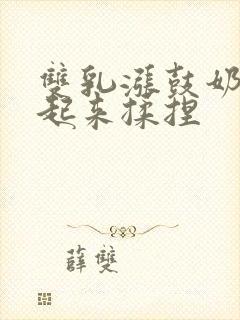 雙乳漲鼓奶
起來揉捏
薛雙